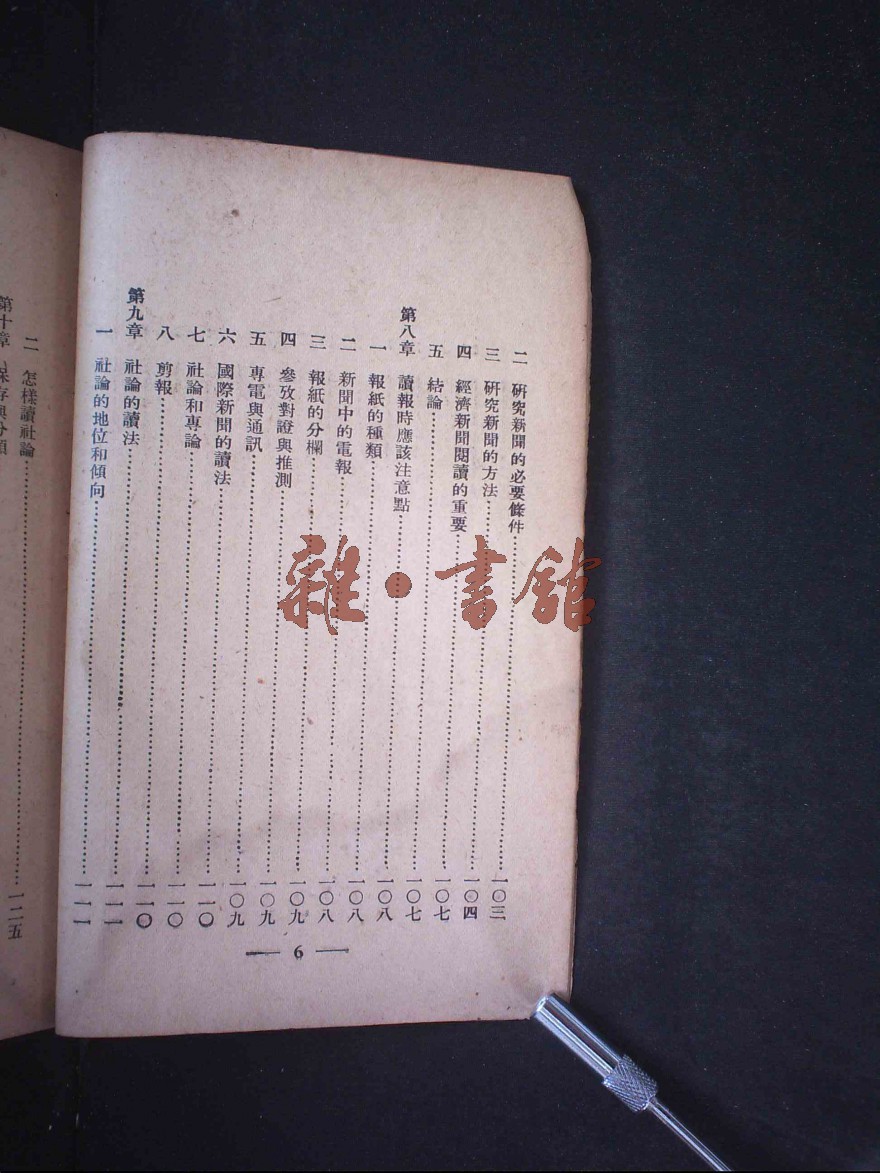 二　研究新聞的必要條件……一〇三
三　研究新聞的方法……一〇四
四　經濟新聞閱讀的重要……一〇七
五　結論……一〇七
第八章　讀報時應該注意點……一〇八
一　報紙的種類……一〇八
二　新聞中的電報……一〇八
三　報紙的分欄……一〇九
四　參攷對證與推測……一〇九
五　專電與通訊……一〇九
六　國際新聞的讀法……一一〇
七　社論和專論……一一〇
八　剪報……一一〇
第九章　社論的讀法……一一一
一　社論的地位和傾向……一一一
— 6 —
二　怎樣讀社論……一二五
第十章
雜·書館